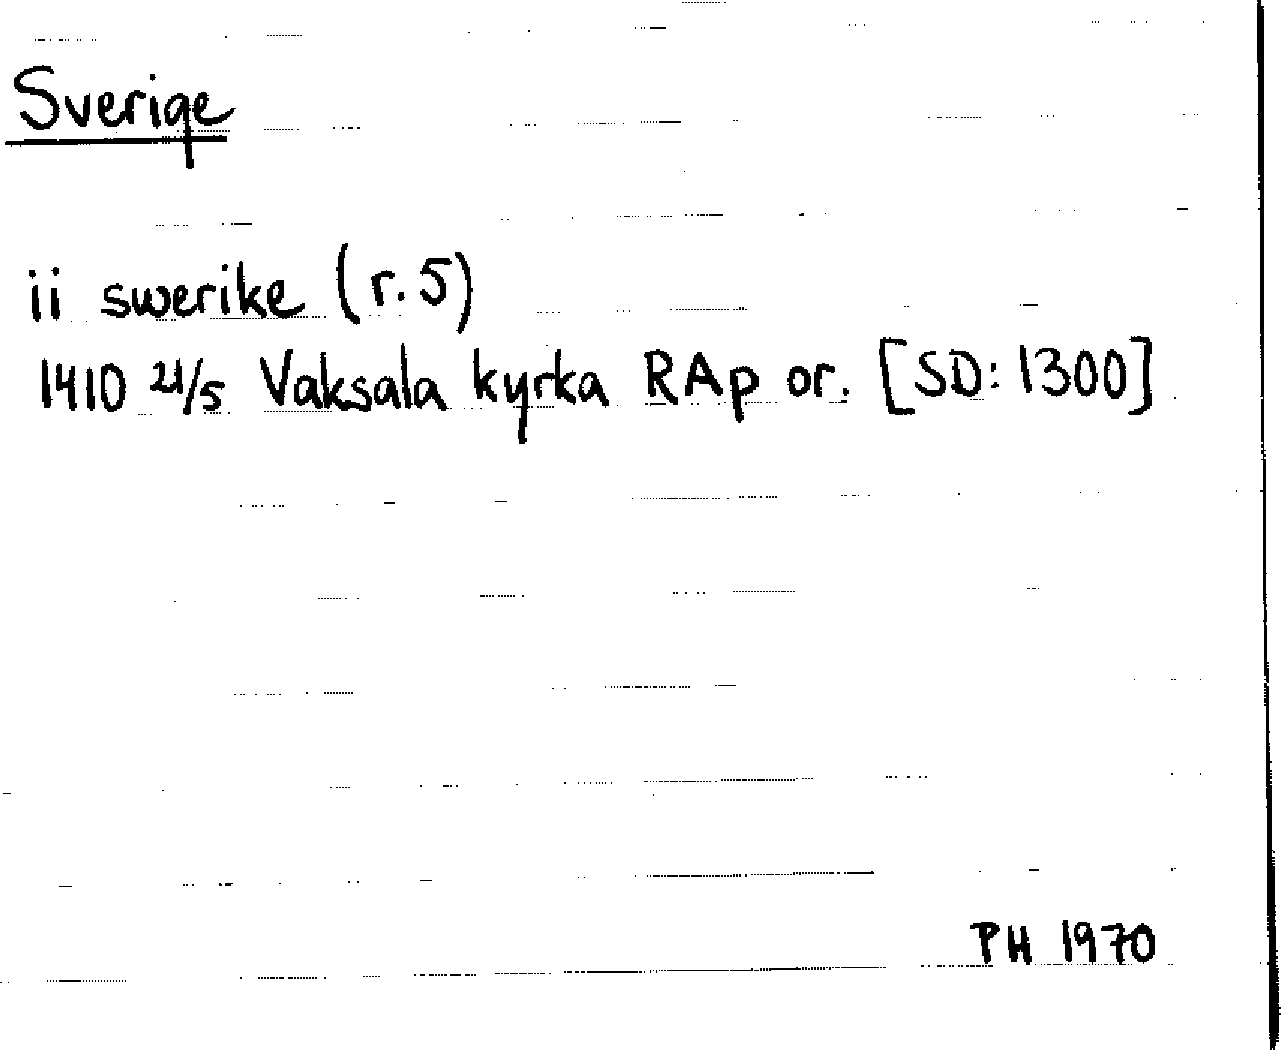 Sverige
ii swerike (r. 5)
1410 21/5 Vaksala kyrka RAp or. [SD: 1300]
PH 1970